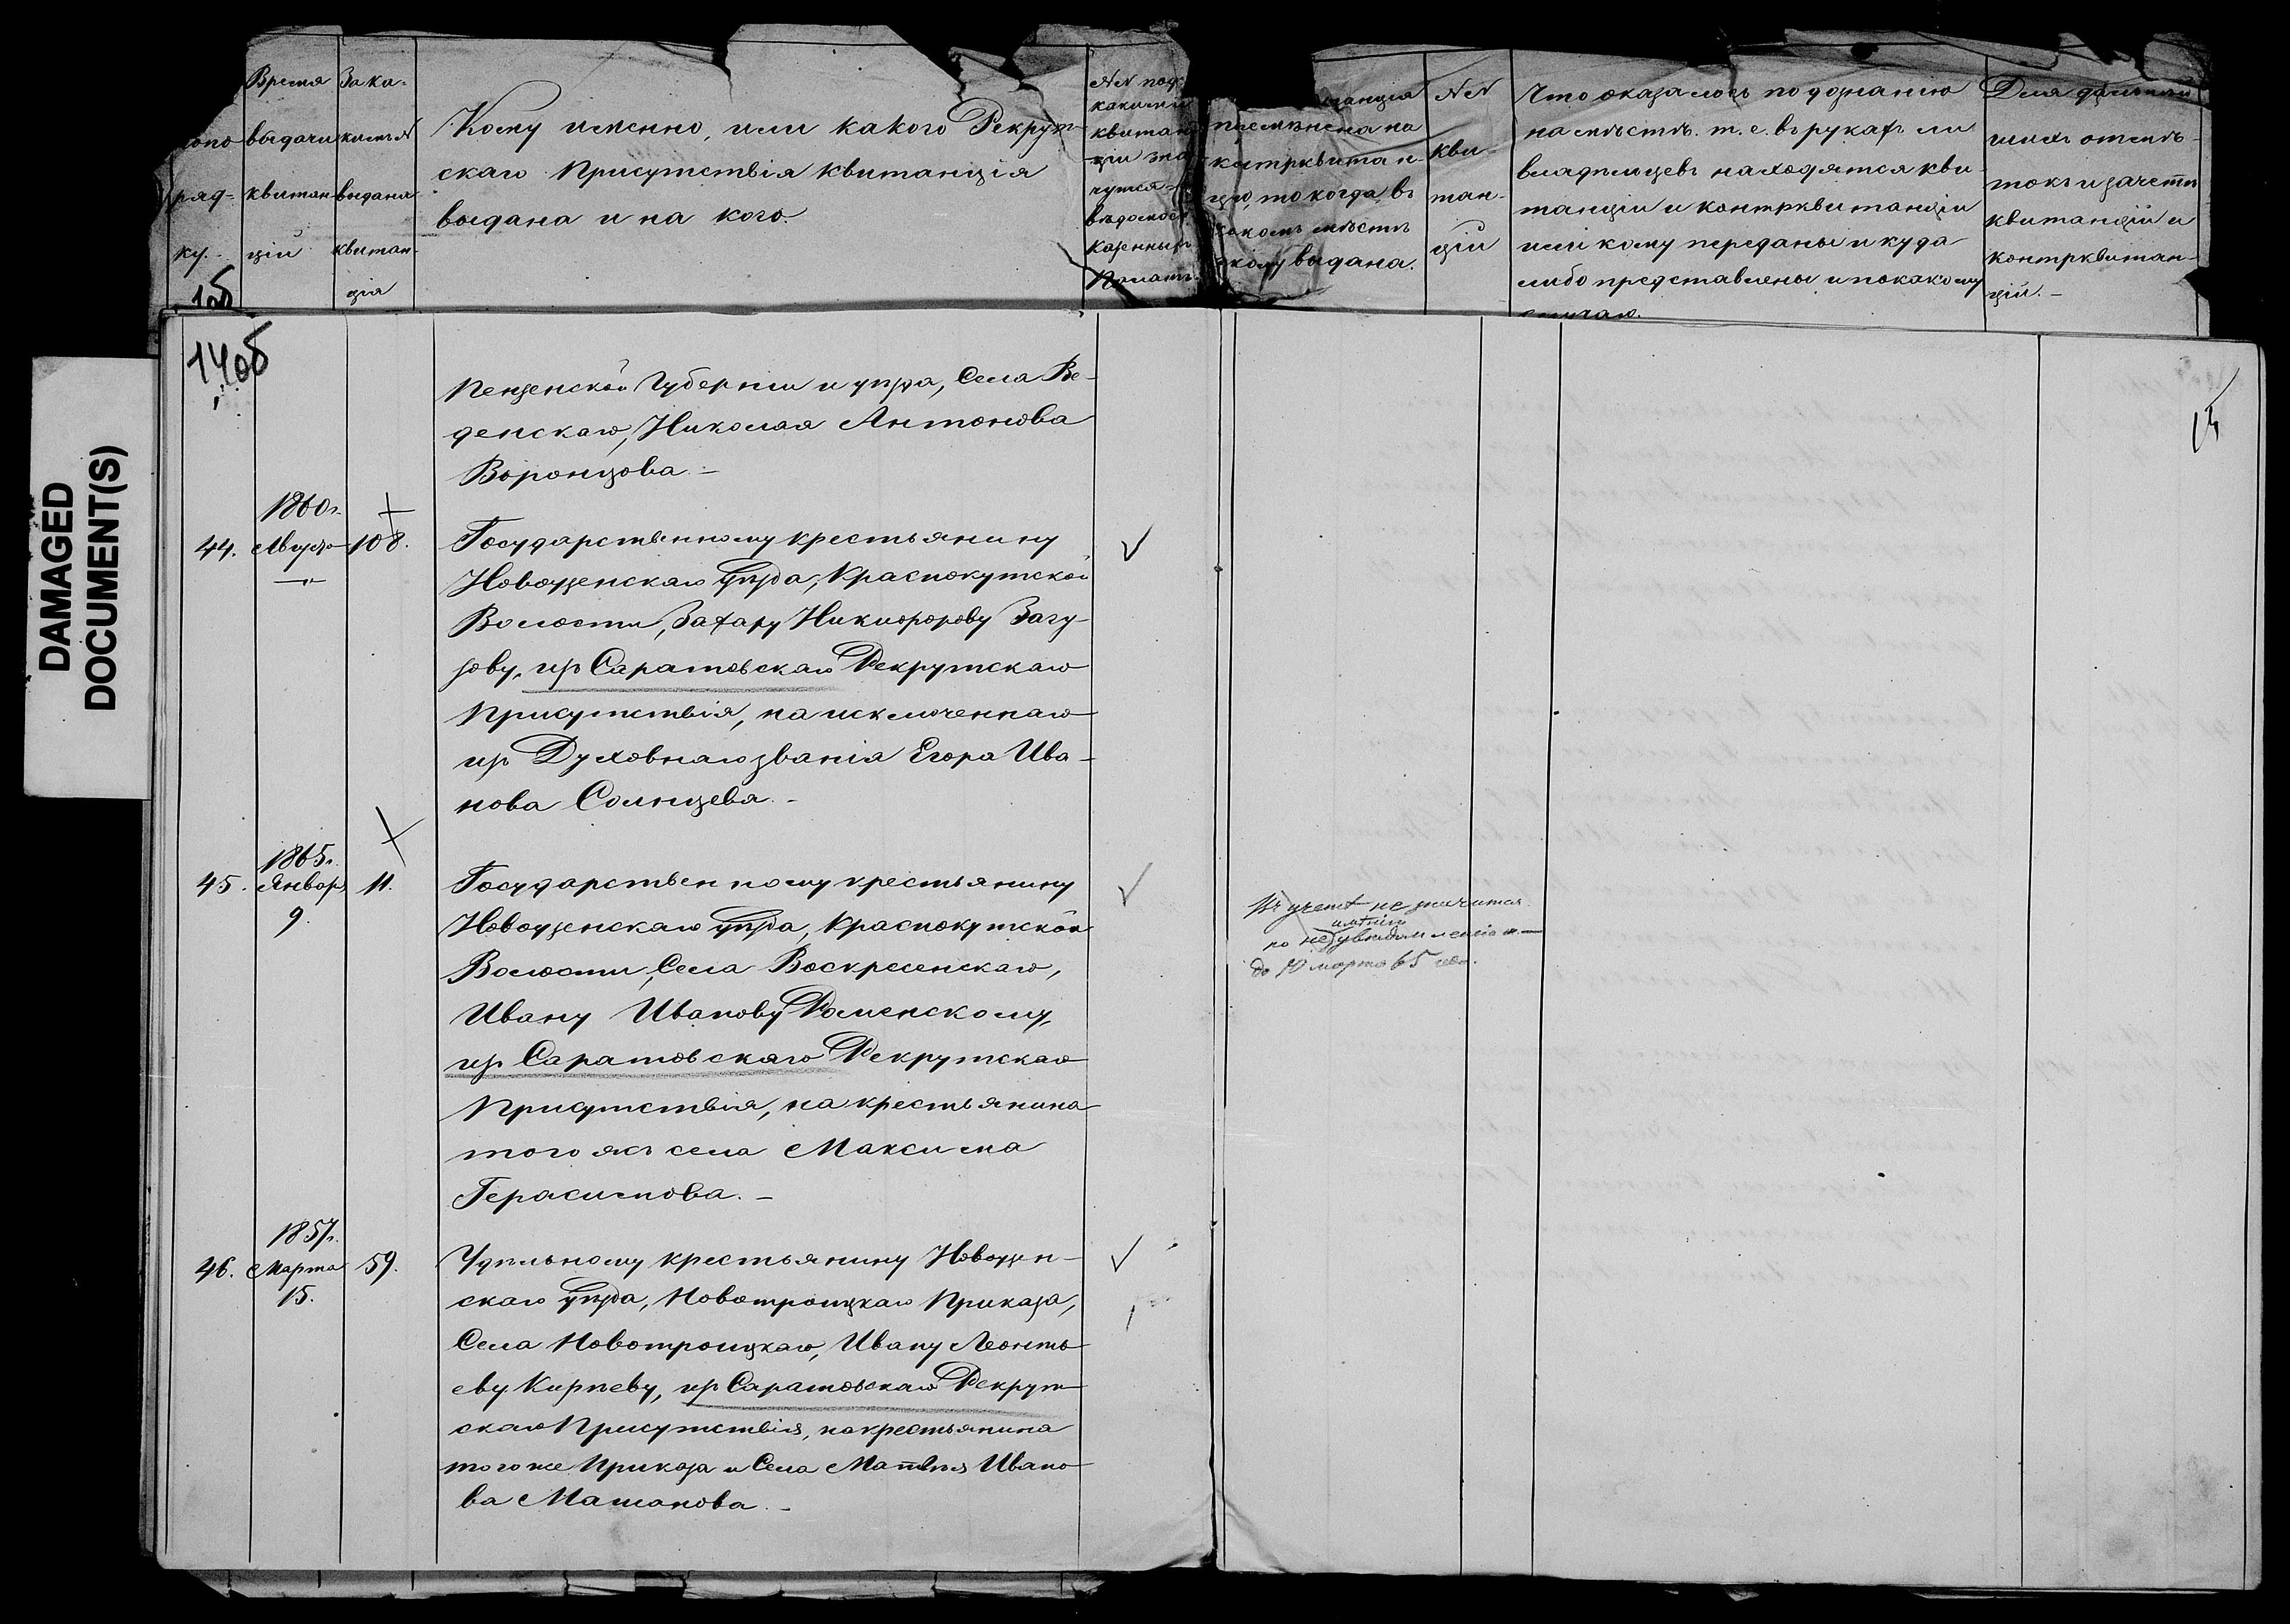 Время
выдачи
квитан-
цій
За ка-
кимъ №
выдана
квитан-
ція
ряд-
ку.
Кому именно, или какого Рекрут-
скаго Присутствія квитанція
выдана и на кого.
№№ подъ
какими
квитан-
ціи зна-
чутся
вѣдомост
Казенныхъ
Палатъ.
квитан-
цію, то когда, въ
какомъ мѣстѣ
и кому выдана.
№№
кви-
тан-
цій
Что оказалось по дознанію
на мѣстѣ. т. е. въ рукахъ ли
владѣльцевъ находятся кви-
танціи и контрквитанціи
или кому переданы и куда
либо представлены и по какому
случаю.
Для дальнѣй
шихъ отмѣ-
токъ и зачета
квитанцій и
контрквитан-
цій. -
14об
15
Пензенской Губерніи и уѣзда, Села Ве-
денскаго, Николая Антонова
Воронцова. -
44.
1860г.
Август
108.
Государственному крестьянину
Новоузенскаго уѣзда, Краснокутской
Волости, Захару Никифорову Загу-
зову, изъ Саратовскаго Рекрутскаго
Присутствія, на исключеннаго
изъ Духовнаго званія Егора Ива-
нова Солнцева. -
45.
1865г.
Январ
9.
11.
Государственному крестьянину
Новоузенскаго уѣзда, Краснокутской
Волости, Села Воскресенскаго,
Ивану Иванову Роменскому,
изъ Саратовскаго Рекрутскаго
Присутствія, на крестьянина
того же села Максима
Герасимова. -
Въ зачет не значится
по не имѣнію увѣдомленія
до 10 марта 65 года.
46.
1857г.
Марта
15.
59.
Удѣльному крестьянину Новоузен-
скаго уѣзда, Новотроицкаго Приказа,
Села Новотроицкаго, Ивану Леонть-
еву Кирѣеву, изъ Саратовскаго Рекрут-
скаго Присутствія, на крестьянина
того же Приказа и Села Матвѣя Ивано-
ва Машанова. -
DAMAGED
DOCUMENT(S)